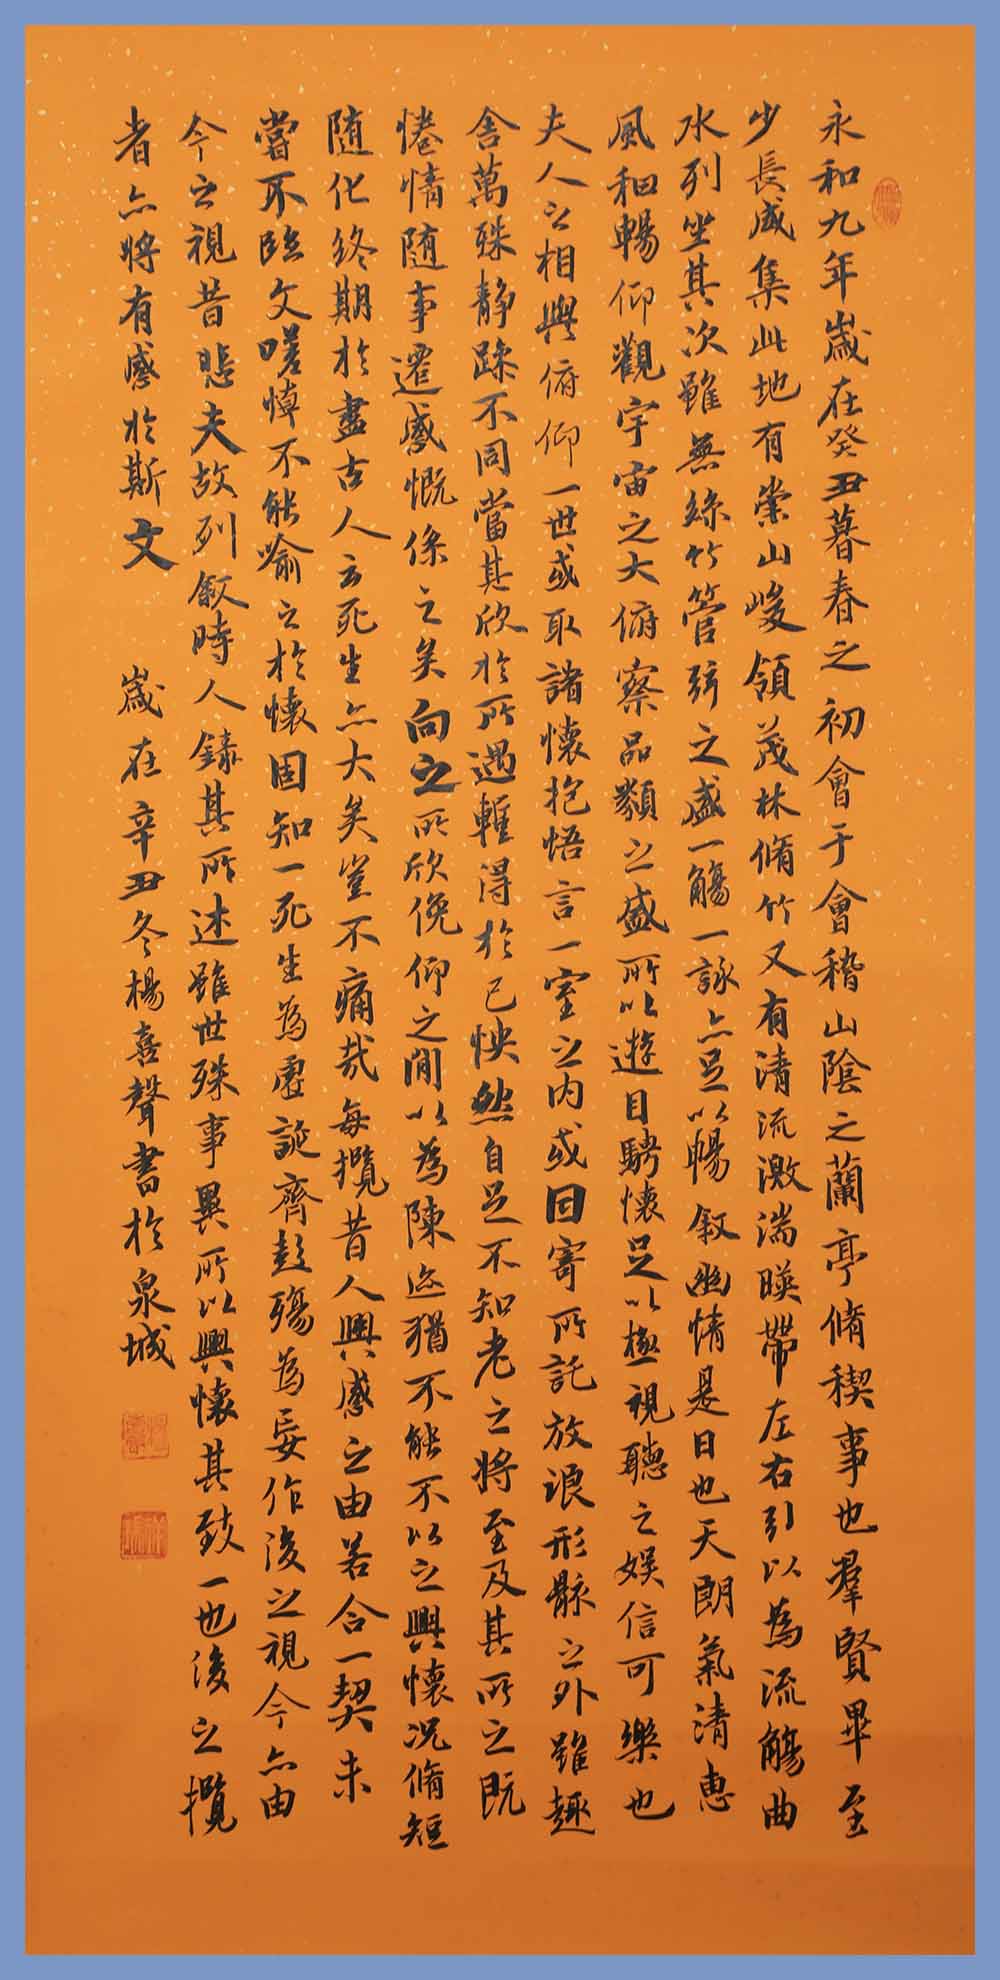 永和九年歲在癸丑暮春之初會于會稽山陰之蘭亭脩稧事也羣賢畢至
少長咸集此地有崇山峻領茂林脩竹又有清流激湍暎帶左右引以為流觴曲
水列坐其次雖無絲竹管弦之盛一觴一詠亦足以暢叙幽情是日也天朗氣清惠
風和暢仰觀宇宙之大俯察品類之盛所以遊目騁懷足以極視聽之娛信可樂也
夫人之相與俯仰一世或取諸懷抱悟言一室之內或因寄所託放浪形骸之外雖趣
舍萬殊静躁不同當其欣於所遇蹔得於己怏然自足不知老之將至及其所之既
惓情隨事遷感慨係之矣向之所欣俛仰之閒以為陳迹猶不能不以之興懷況脩短
隨化終期於盡古人云死生亦大矣豈不痛哉每攬昔人興感之由若合一契未
嘗不臨文嗟悼不能喻之於懷固知一死生為虛誕齊彭殤為妄作後之視今亦由
今之視昔悲夫故列叙時人錄其所述雖世殊事異所以興懷其致一也後之攬
者亦將有感於斯文 歲在辛丑冬楊喜聲書於泉城